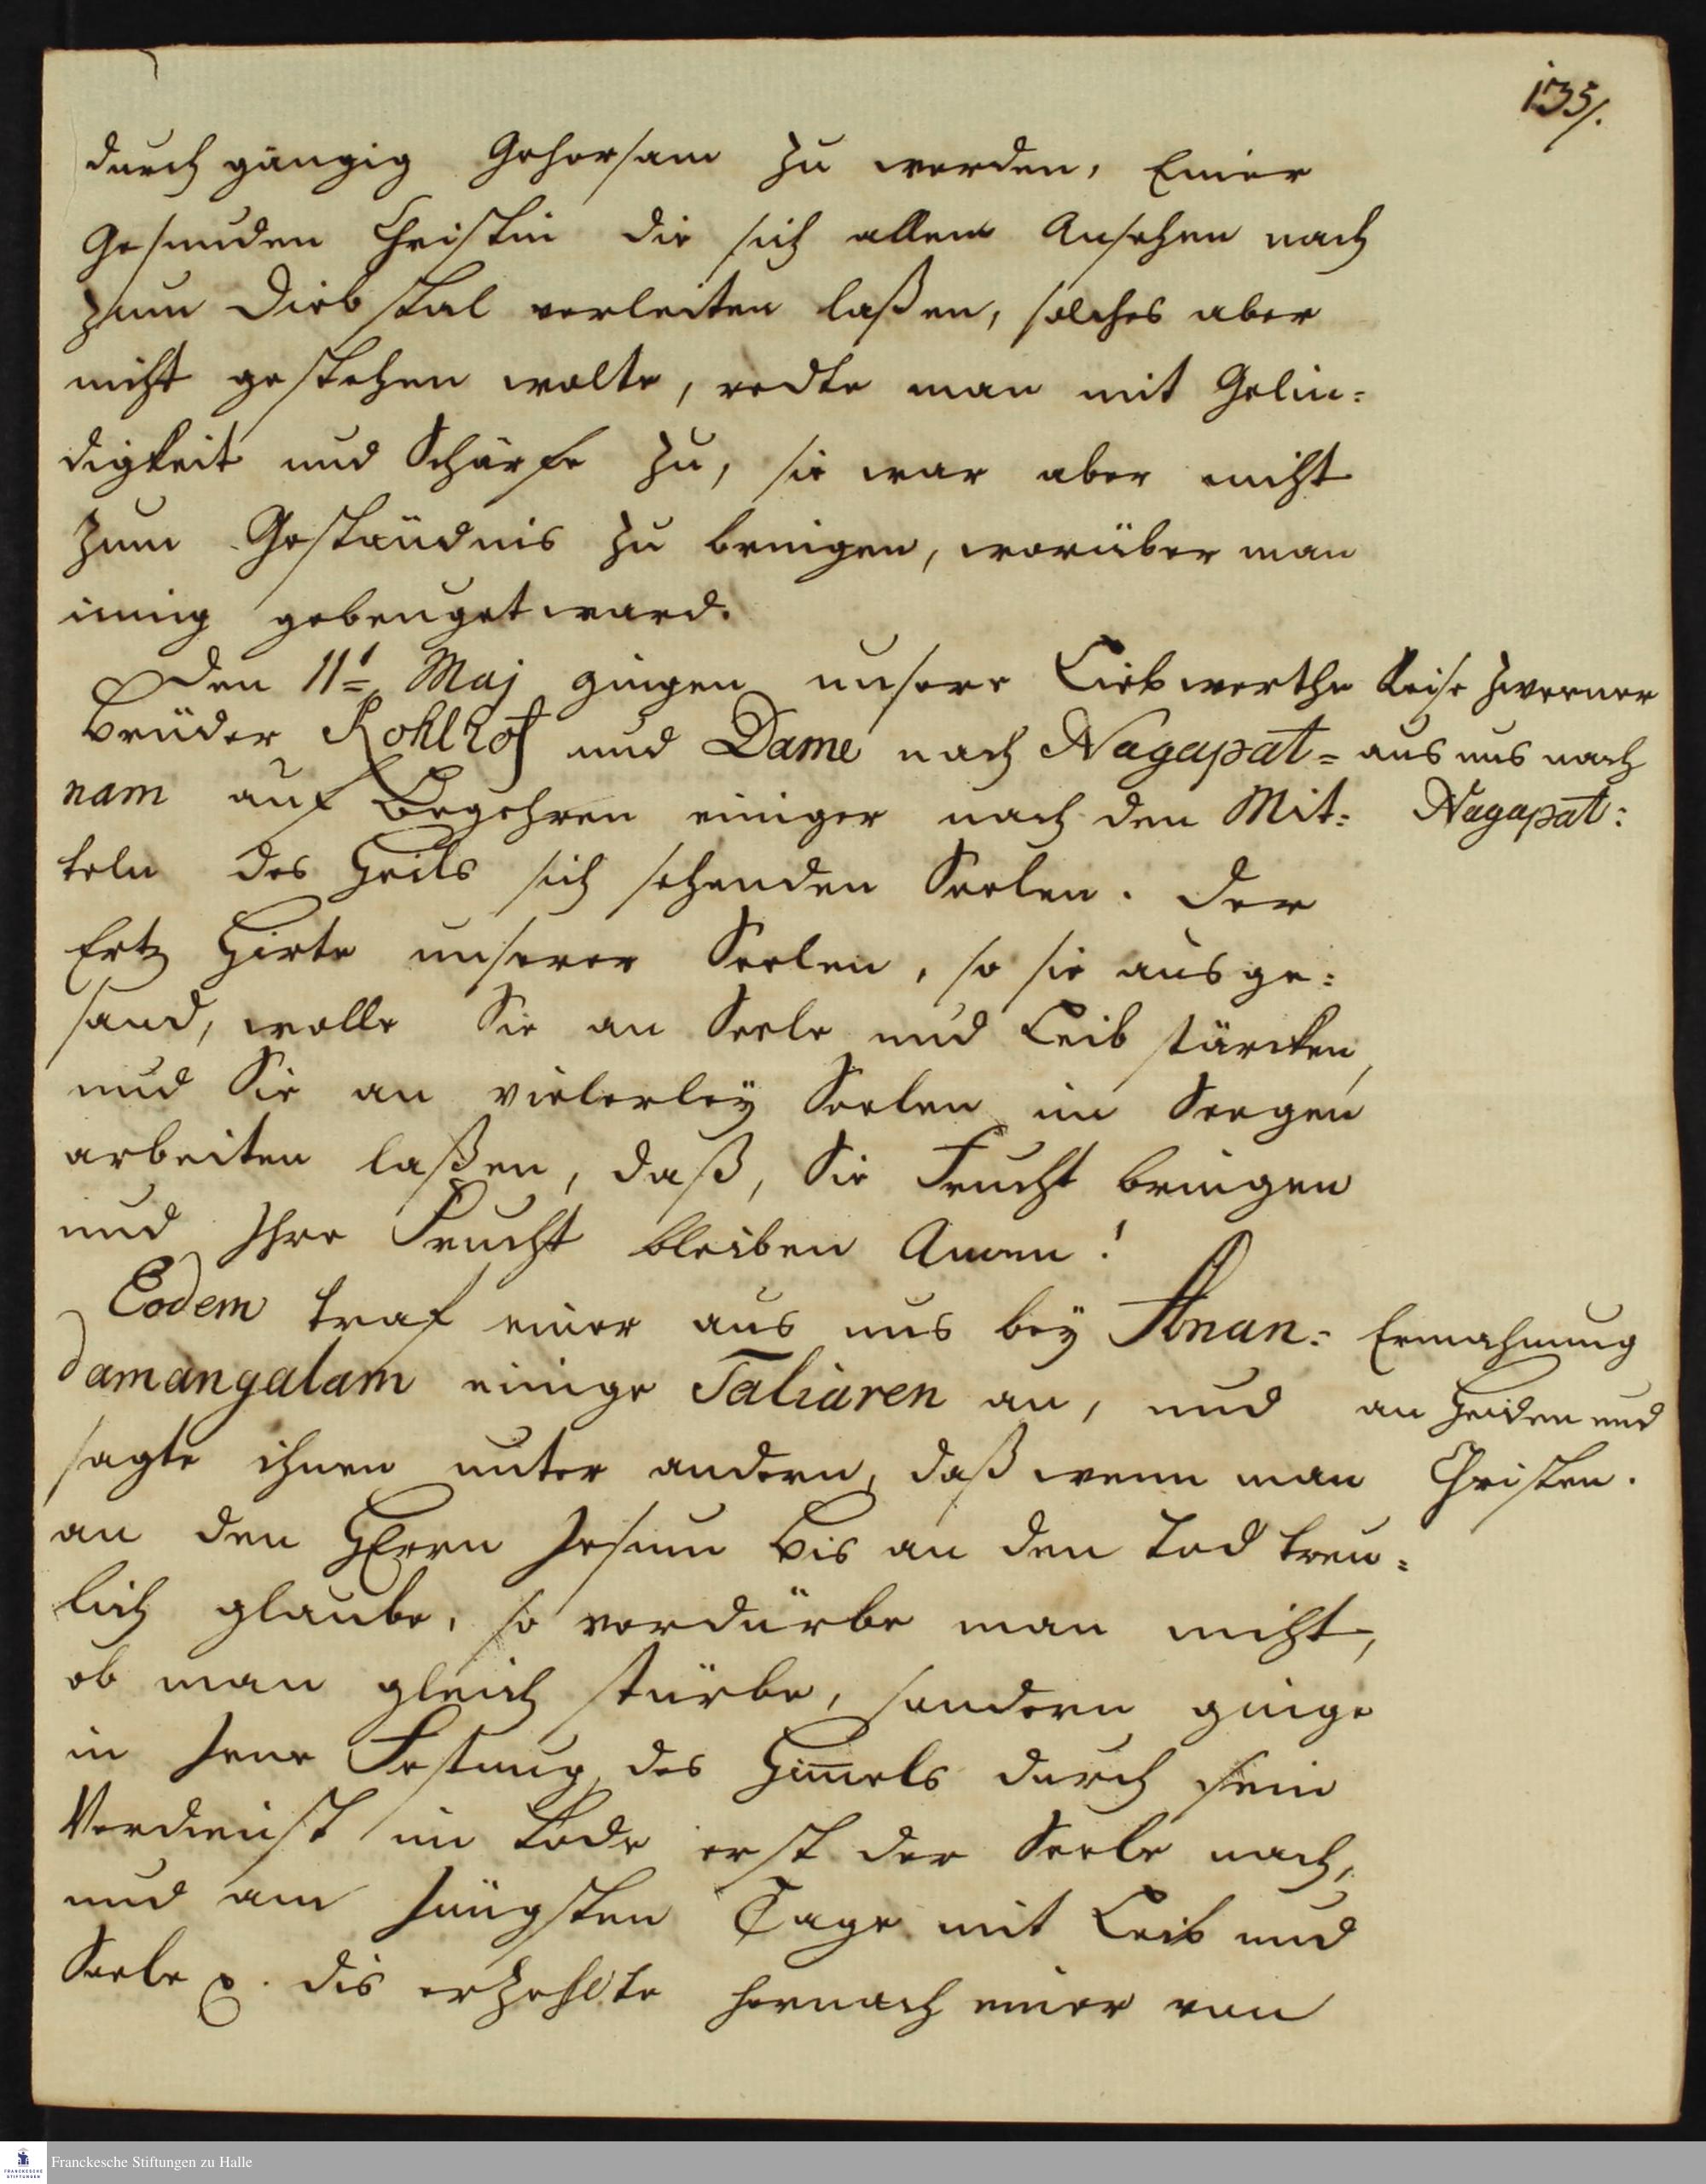 135/.
durch gängig Gehorsam zu werden, Einer
Gesunden Christin die sich allem Ansehen nach
zum Diebstal verleiten laßen, solches aber
nicht gestehen wolte, redte man mit Gelin=
digkeit und Schärfe zu, sie war aber nicht
zum Geständnis zu bringen, worüber man
innig gebeuget ward.
Den 11t Maj gingen unsere Liebwerthe
Brüder Kohlhof und Dame nach Nagapat=
nam auf Begehren einiger nach den Mit=
teln des Heils sich sehenden Seelen. Der
Ertz Hirte unserer Seelen, so sie ausge=
sand, wolle Sie an Seele und Leib stärcken,
und Sie an vielerley Seelen im Seegen
arbeiten laßen, daß, Sie Frucht bringen
und Ihre Frucht bleiben Amen!
Eodem traf einer aus uns bey Anan=
damangalam einige Taliaren an, und
sagte ihnen unter andern, daß wenn man
an den HErrn Jesum bis an den Tod treu=
lich glaube, so verdürbe man nicht,
ob man gleich stürbe, sondern ginge
in jene Festung des Him̅els durch sein
Verdienst im Tode erst der Seele nach,
und am Jüngsten Tage mit Leib und
Seele p. dis erzehlte hernach einer von
Reise zweener
aus uns nach
Nagapat:
Ermahnung
an Heiden und
Christen.
Franckesche Stiftungen zu Halle